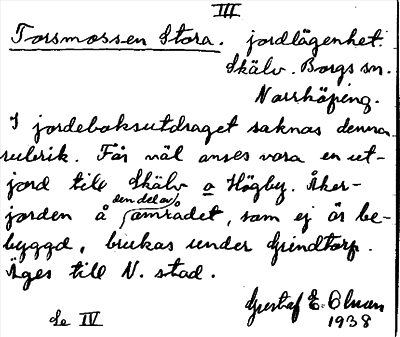 III
Torsmossen Stora. jordlägenhet.
Skälv. Borgs sn.
Norrköping.
I jordeboksutdraget saknas denna
rubrik. Får väl anses vara en ut-
jord till Skälv o Högby. Åker-
jorden å den del av området, som ej är be-
byggd, brukas under Grindtorp.
Äges till N. stad.
Gustaf E. Olsson
Se IV 1938